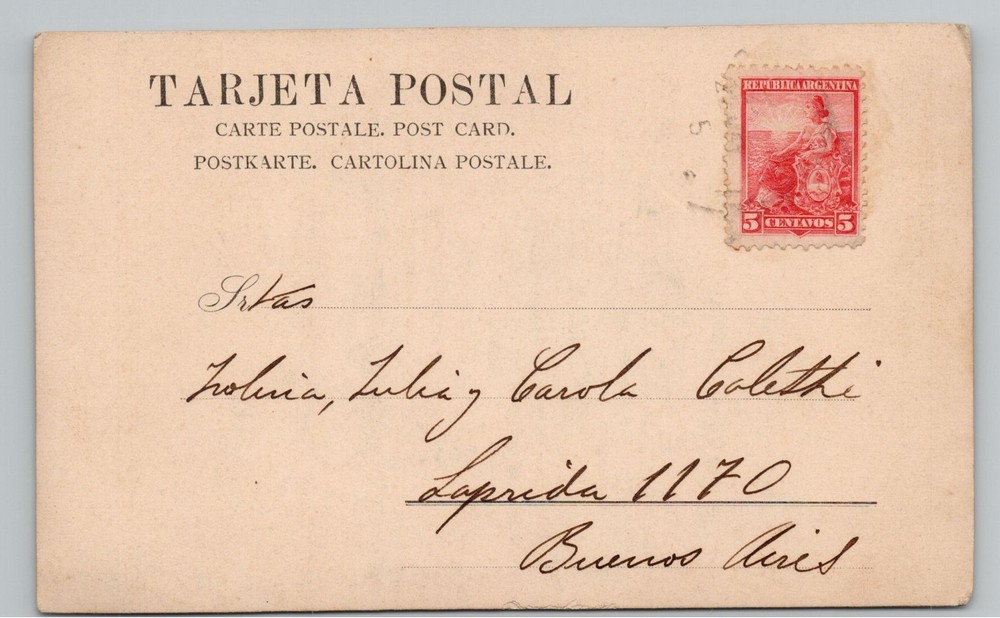 TARJETA POSTAL
CARTE POSTALE. POST CARD.
POSTKARTE. CARTOLINA POSTALE.
REPÚBLICA ARGENTINA
5 CENTAVOS 5
Srtas
Julia y Carola
Laprida 1170
Buenos Aires